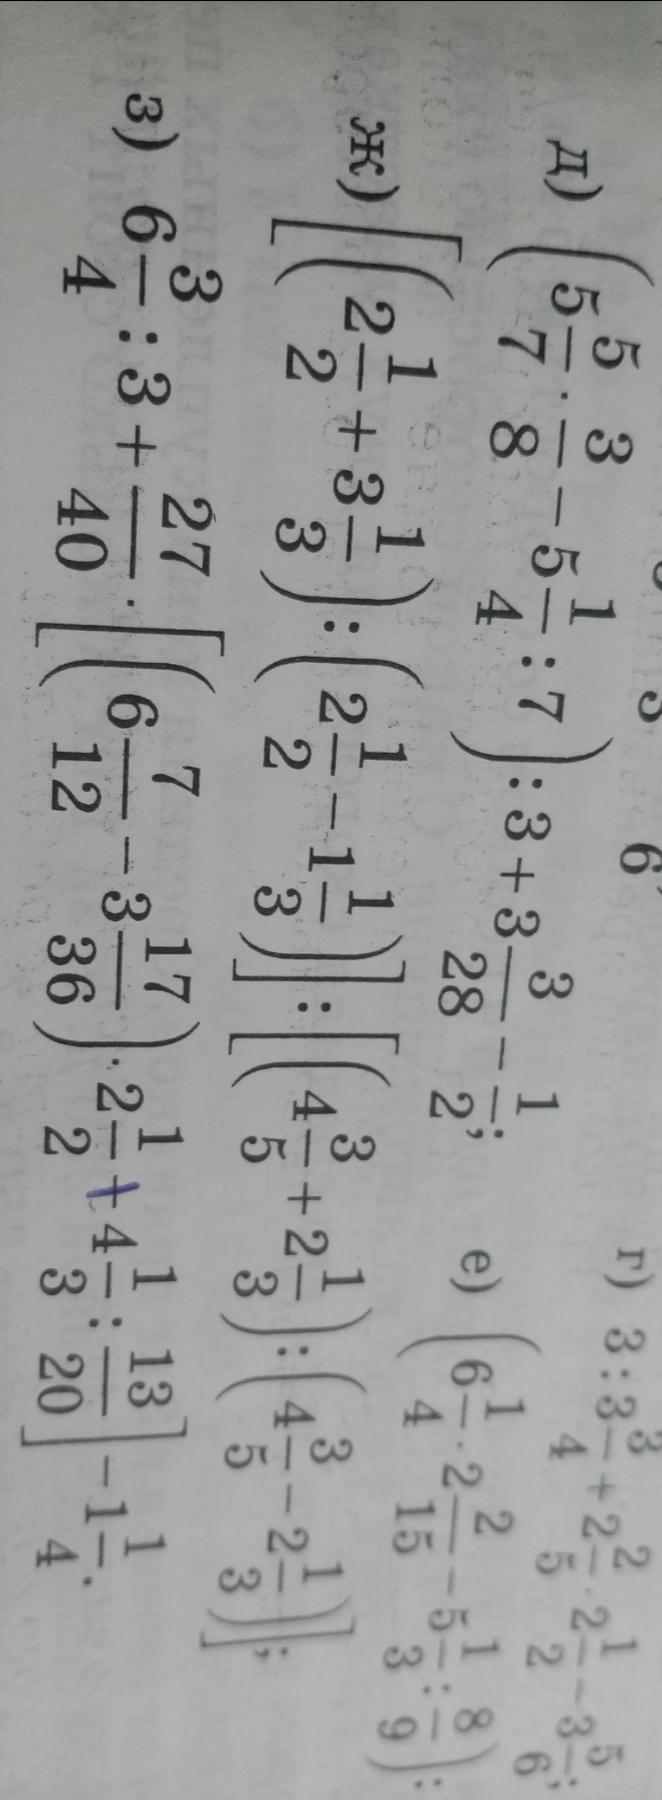 г) 3 : 3 3/4 + 2 2/5 · 2 1/2 − 3 5/6;
д) (5 5/7 · 3/8 − 5 1/4 : 7) : 3 + 3 3/28 − 1/2;
е) (6 1/4 · 2 2/15 − 5 1/3 : 8/9) :
ж) [(2 1/2 + 3 1/3) : (2 1/2 − 1 1/3)] : [(4 3/5 + 2 1/3) : (4 3/5 − 2 1/3)];
з) 6 3/4 : 3 + 27/40 · [(6 7/12 − 3 17/36) · 2 1/2 + 4 1/3 : 13/20] − 1 1/4.